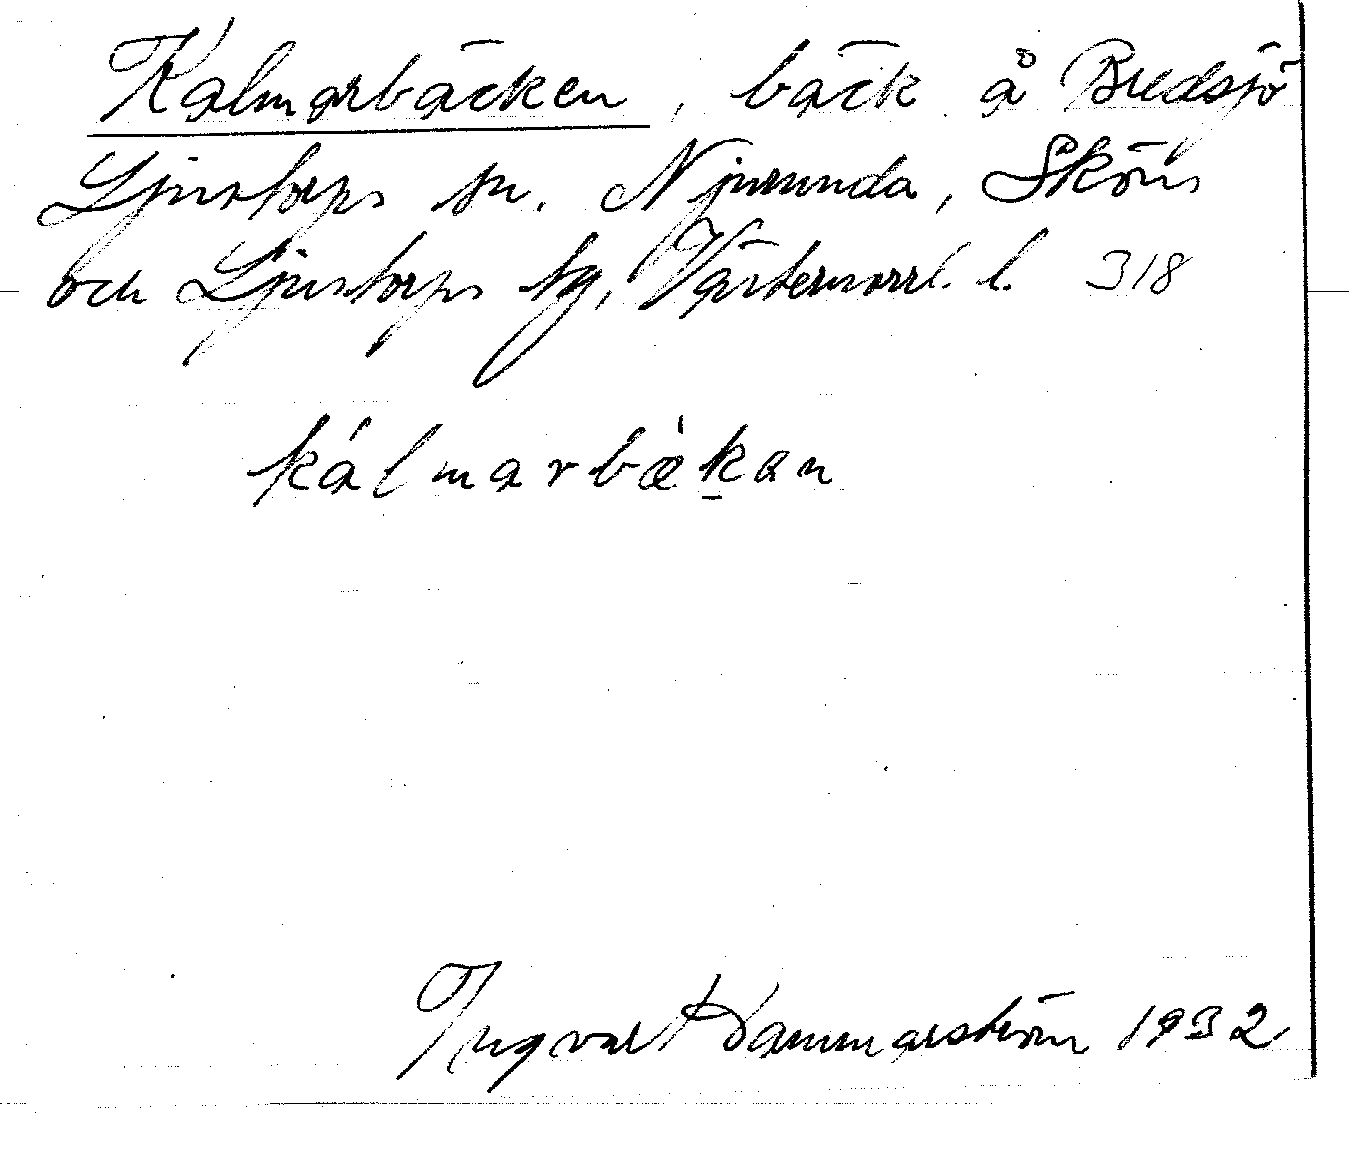 Kalmarbäcken, bäck å Bredsjö
Ljustorps sn. Njurunda, Sköns
och Ljustorps tg, Västernorrl. l. 318
kálmarbæ̀kan
Ingvar Hammarström 1932